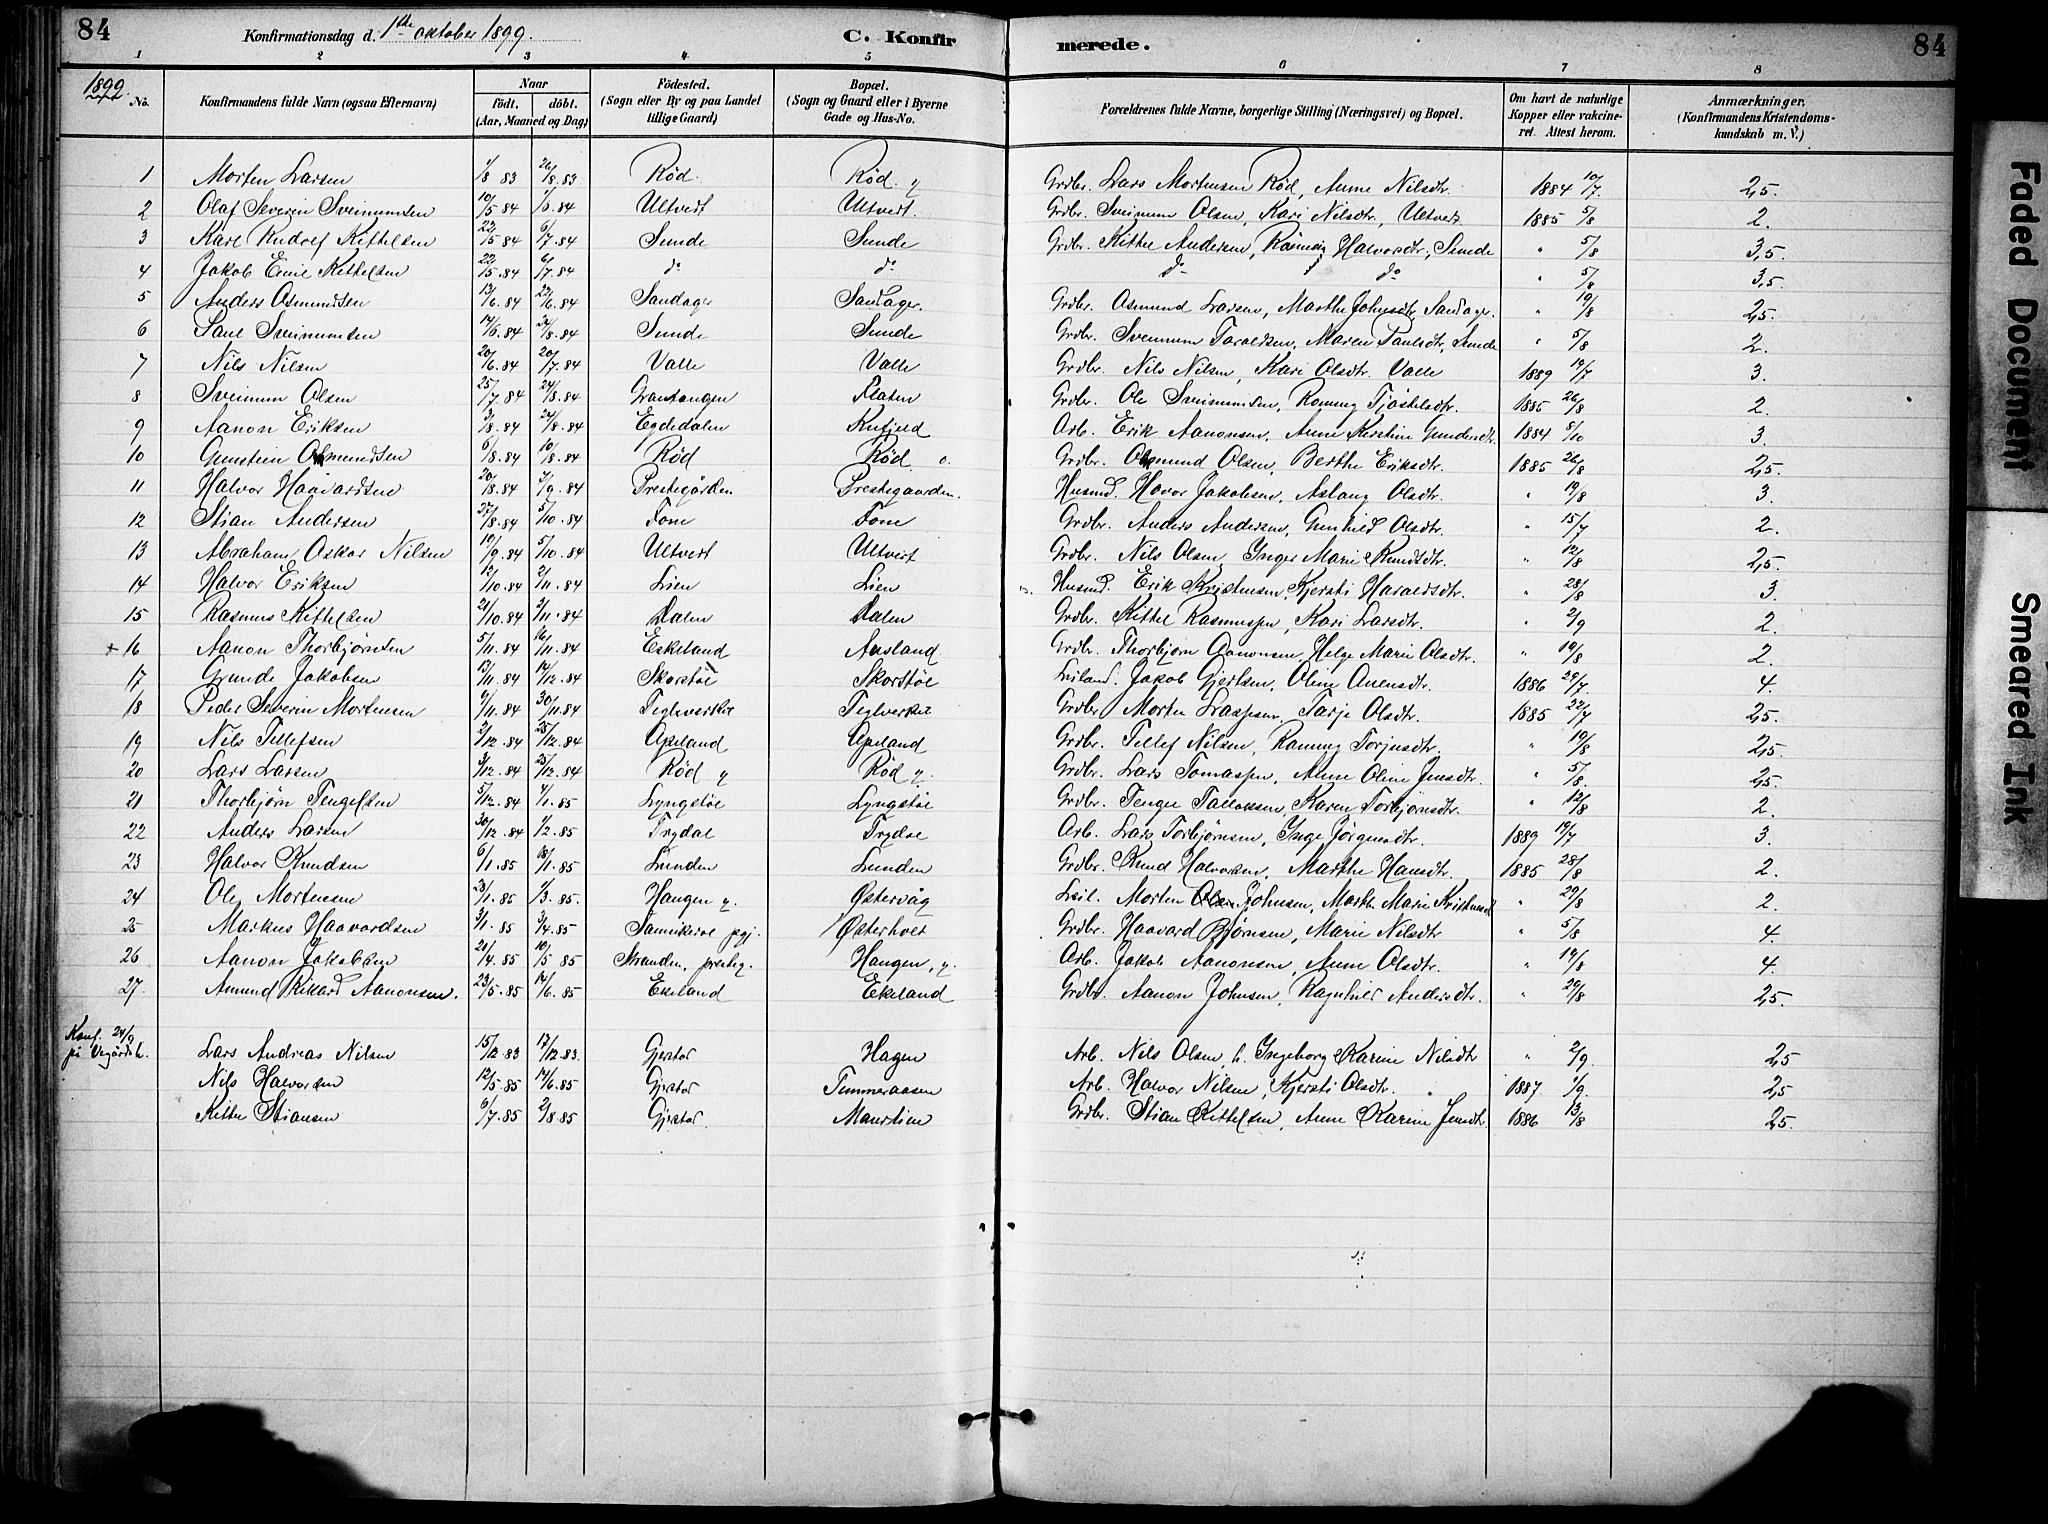 84 Konfirmationsdag d. 1ste oktober 1899. C. Konfirmerede. 84
1 2 3 4 5 6 7 8
1899. No. Konfirmandens fulde Navn (ogsaa Efternavn) Naar født. døbt. (Aar, Maaned og Dag) Födested. (Sogn eller By og paa Landet tillige Gaard) Bopæl. (Sogn og Gaard eller i Byerne Gade og Hus-No. Forældrenes fulde Navne, borgerlige Stilling (Næringsvei) og Bopæl. Om havt de naturlige Kopper eller vakcineret. Attest herom. Anmærkninger. (Konfirmandens Kristendomskundskab m. V.)
1 Morten Larsen 1/8 83 26/8.83 Rød Rød y Grdbr. Lars Mortensen Rød, Anne Nilsdtr. 1884 10/7. 2,5.
2 Olaf Severin Sveinumsen 10/5.84 1/6.84 Ultvedt Ultvedt. Grdbr. Sveinum Olsen, Kari Nilsdtr, Ultvedt 1885 5/8 2.
3 Karl Rudolf Kittelsen 22/5.84 6/7.84 Sunde Sunde Grdbr. Kittel Andersen, Halvorsdtr, Sunde " 5/8 3,5.
4 Jakob Emil Kittelsen 22/5.84 6/7.84 do do do do " 5/8 3,5.
5 Anders Osmundsen 13/6.84 22/6.84 Sandager Sandager. Grdbr. Osmund Larsen, Marthe Johnsdtr Sandager. " 19/8 2,5.
6 Paul Sveinumsen 14/6.84 24/8.84 Sunde Sunde Grdbr. Sveinum Taraldsen, Maren Paulsdtr, Sunde " 5/8 2.
7 Nils Nilsen 20/6.84 20/7.84 Valle Valle Grdbr. Nils Nilsen, Kari Olsdtr. Valle 1889 19/7 3.
8 Sveinum Olsen 25/7.84 24/8.84 Grantangen Flaten Grdbr. Ole Sveinumsen, Ronnug Tjøstelsdtr. 1885 26/8 2.
9 Aanon Eriksen 2/8.84 24/8.84 Egdedalen Knifjeld Arb. Erik Aanonsen, Anne Kirstine Gundersdtr. 1884 5/10 3.
10 Gunstein Osmundsen 6/8.84 10/8.84 Rød Rød o. Grdbr. Osmund Olsen, Berthe Eriksdtr. 1885 26/8 2,5.
11 Halvor Haavardsen 20/8.84 7/9.84 Prestegården Prestegaarden. Husmd. Havor Jakobsen, Aslaug Olsdtr. " 19/8 3.
12 Stian Andersen 27/8.84 5/10.84 Fone Fone Grdbr. Anders Andersen, Gunhild Olsdtr. " 15/7 2.
13 Abraham Oskar Nilsen 10/9.84 5/10.84 Ultvedt Ultvedt Grdbr. Nils Olsen, Inger Marie Knudsdtr. " 12/8 2,5.
14 Halvor Eriksen 2/10.84 2/11.84 Lien Lien Husmd. Erik Kristensen, Kjersti Haraldsdtr. " 28/8 3.
15 Rasmus Kittelsen 21/10.84 2/11.84 Dalen Dalen Grdbr. Kittel Rasmussen, Kari Larsdtr. " 2/9 2.
+ 16 Aanon Thorbjørnsen 5/11.84 16/11.84 Eskeland Ausland. Grdbr. Thorbjørn Aanonsen, Helge Marie Olsdtr. " 19/8 2.
17 Grunde Jakobsen 13/11.84 14/12.84 Skorstøl Skorstøl Leiland. Jakob Gjertsen, Oline Anensdtr. 1886 29/7. 4.
18 Peder Severin Mortensen 9/11.84 30/11.84 Teglverket Teglverket Grdbr. Morten Larssen, Tarje Olsdtr. 1885 22/7 2,5.
19 Nils Tellefsen 2/12.84 25/12.84 Apeland Apeland Grdbr. Tellef Nilsen, Ronnug Torjusdtr. " 19/8 2,5.
20 Lars Larsen 3/12.84 25/12.84 Rød y Rød y. Grdbr. Lars Tomassen, Anne Oline Jensdtr. " 5/8. 2,5.
21 Thorbjørn Tengelsen 5/12.84 4/1.85 Lyngstøl Lyngstøl Grdbr. Tengel Tallaksen, Karen Torbjørnsdtr. " 12/8 2.
22 Anders Larsen 30/12.84 1/2.85 Trydal Trydal Arb. Lars Torbjørnsen, Inge Jørgensdtr. 1889 19/7 3.
23 Halvor Knudsen 6/1.85 18/1.85 Lunden Lunden Grdbr. Knud Halvorsen, Marthe Hansdtr. 1885 28/8 2.
24 Ole Mortensen 23/1.85 1/3.85. Haugen y. Østervåg Leil. Morten Johnsen, Marthe Marie Kristensd " 29/8 2.
25 Markus Haavardsen 3/1.85 3/4.85 Sannikedal pgj. Østerholt Grdbr. Haavard Bjørnsen, Marie Nilsdtr " 5/8 4.
26 Aanon Jakobsen 21/4.85 10/5 85 Stranden, presteg. Haugen, y. Arb. Jakob Aanonsen, Anne Olsdtr. " 19/8 4.
27. Amund Rikard Aanonsen. 23/5.85 14/6.85 Ekeland Ekeland Grdbr. Aanon Johnsen, Ragnhild Andersdtr. " 29/8 2,5.
Konf. 24/9 på Vegårdsh. Lars Andreas Nilsen 15/12 83 17/12.83. Gjerstad Hagen Arb. Nils Olsen, h. Ingeborg Karine Nilsdtr " 2/9. 2,5
Nils Halvorsen 12/5.85 14/6.85 Gjerstad Timmeraasen Arb. Halvor Nilsen, Kjersti Olsdtr. 1887. 1/9. 2,5
Kittel Stiansen 6/7.85 2/8.85 Gjerstad. Maurlien Grdbr. Stian Kittelsen, Anne Karine Jensdtr 1886 13/8 2,5.
Faded Document
Smeared Ink